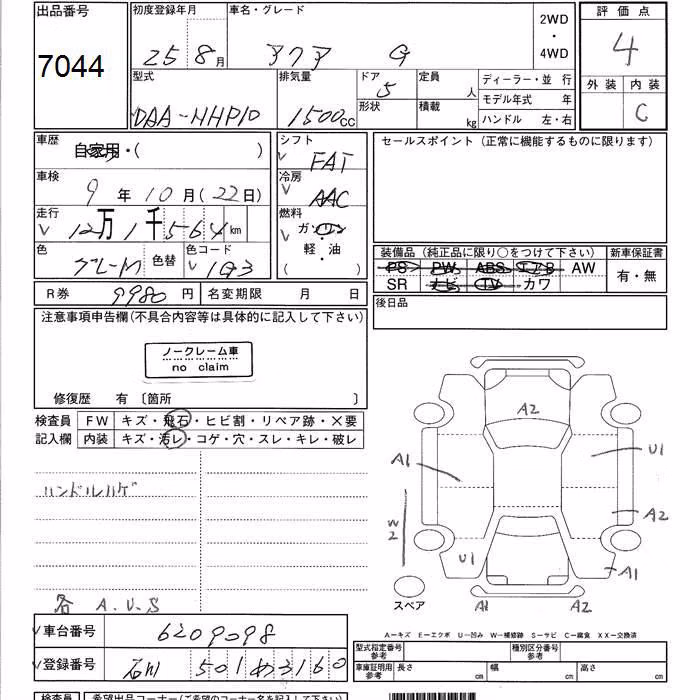 出品番号
7044
初度登録年月
25 8月
車名・グレード
アクア G
2WD
・
4WD
評価点
4
外装 内装
C
型式
DAA-NHP10
排気量
1500cc
ドア
5
形状
定員
人
積載
kg
ディーラー・並 行
モデル年式 年
ハンドル 左・右
車歴
自家用・( )
車検
9年 10月(22日)
走行
12万1千564km
色
グレーM
色替
色コード
1G3
シフト
FAT
冷房
AAC
燃料
ガソリン
軽・油
( )
セールスポイント (正常に機能するものに限ります)
装備品 (純正品に限り○をつけて下さい)
PS PW ABS エアB AW
SR ナビ TV カワ
新車保証書
有・無
R券 9980円
名変期限 月 日
後日品
注意事項申告欄(不具合内容等は具体的に記入して下さい)
ノークレーム車
no claim
修復歴 有 〔箇所 〕
検査員
記入欄
FW キズ・飛石・ヒビ割・リペア跡・×要
内装 キズ・汚レ・コゲ・穴・スレ・キレ・破レ
ハンドルハゲ
各 A.U.S
A2
A1
U1
W2
A2
U1
A1
A1
A2
スペア
車台番号 6209098
登録番号 石川 501め3160
A－キズ E－エクボ U－凹み W－補修跡 S－サビ C－腐食 XX－交換済
型式指定番号
参考
種別区分番号
参考
車庫証明用
参考
長さ cm
幅 cm
高さ cm
検査員
希望出品コーナー(ご希望のコーナー名を記入して下さい)